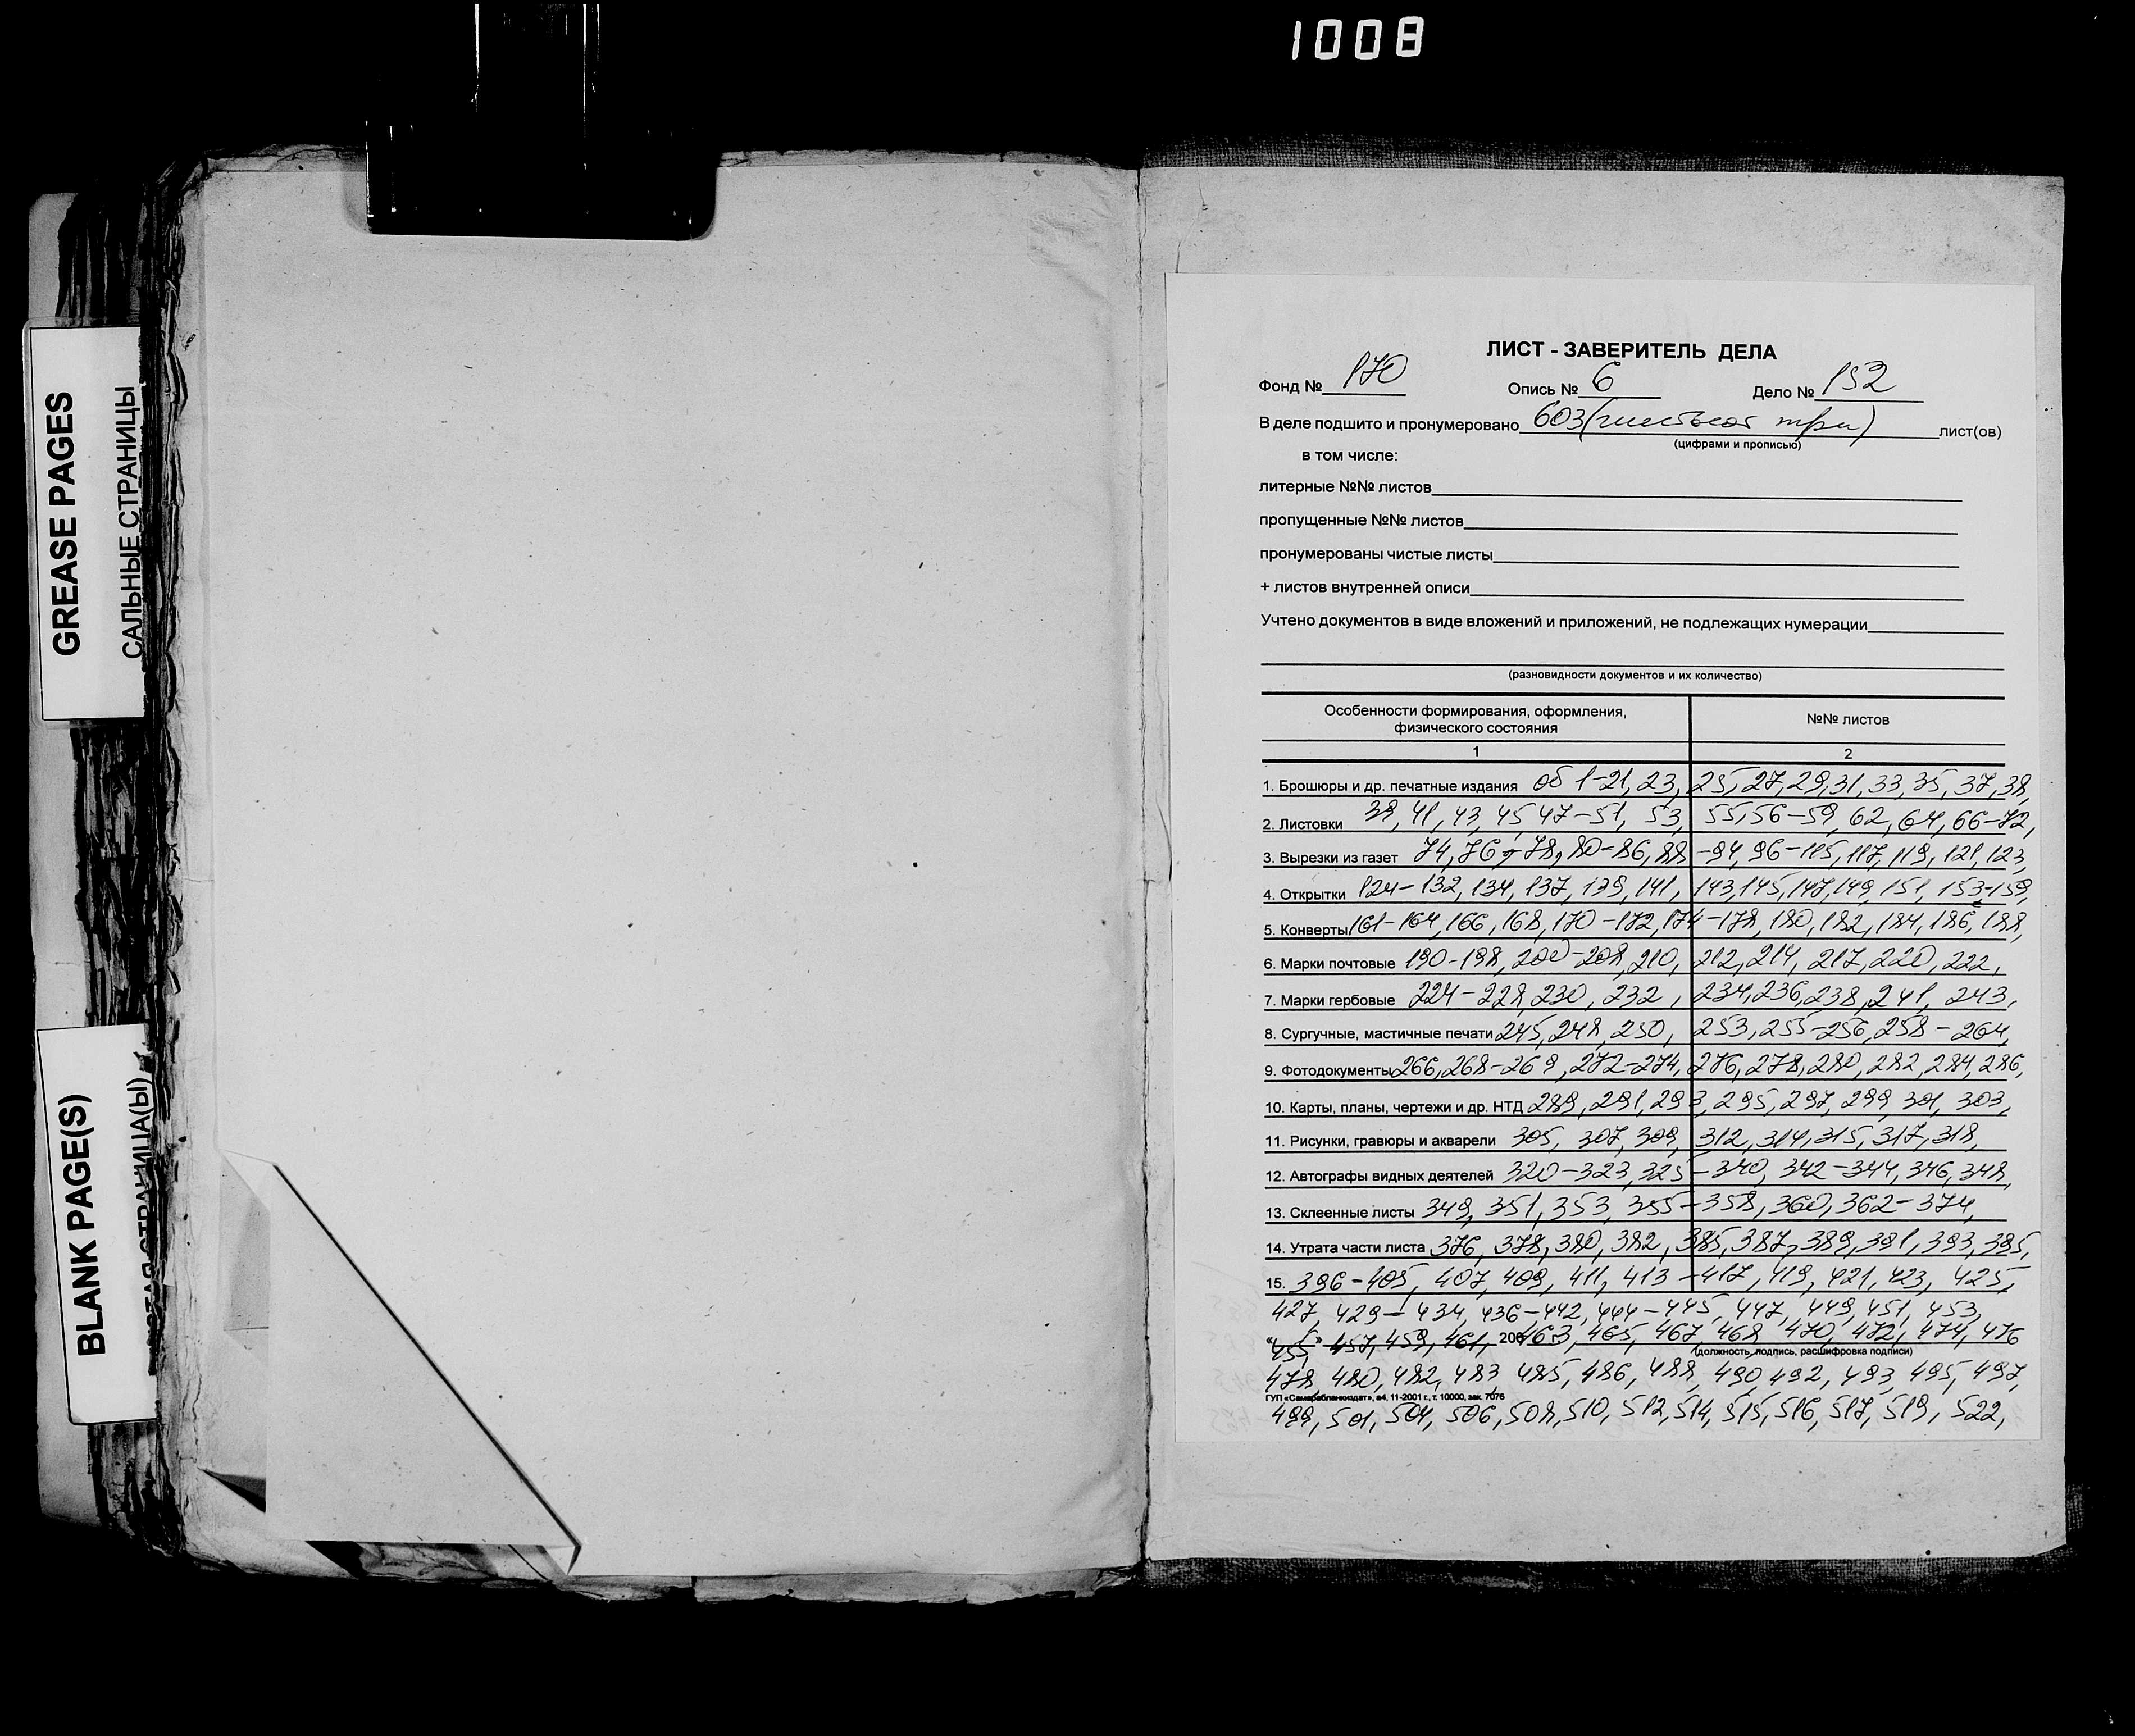 1008
GREASE PAGES
САЛЬНЫЕ СТРАНИЦЫ
BLANK PAGE(S)
СТРАНИЦА(Ы)
ЛИСТ - ЗАВЕРИТЕЛЬ ДЕЛА
Фонд № 170 Опись № 6 Дело № 152
В деле подшито и пронумеровано 603 (шестьсот три) лист(ов)
(цифрами и прописью)
в том числе:
литерные №№ листов
пропущенные №№ листов
пронумерованы чистые листы
+ листов внутренней описи
Учтено документов в виде вложений и приложений, не подлежащих нумерации
(разновидности документов и их количество)
Особенности формирования, оформления, физического состояния №№ листов
1 2
1. Брошюры и др. печатные издания об 1-21, 23, 25, 27, 29, 31, 33, 35, 37, 38,
2. Листовки 39, 41, 43, 45, 47-51, 53, 55, 56-59, 62, 64, 66-72,
3. Вырезки из газет 74, 76, 78, 80-86, 88-94, 96-115, 117, 119, 121, 123,
4. Открытки 124-132, 134, 137, 139, 141, 143, 145, 147, 149, 151, 153-159,
5. Конверты 161-164, 166, 168, 170-172, 174-178, 180, 182, 184, 186, 188,
6. Марки почтовые 190-198, 200-208, 210, 212, 214, 217, 220, 222,
7. Марки гербовые 224-228, 230, 232, 234, 236, 238, 241, 243,
8. Сургучные, мастичные печати 245, 248, 250, 253, 255-256, 258-264,
9. Фотодокументы 266, 268-269, 272-274, 276, 278, 280, 282, 284, 286,
10. Карты, планы, чертежи и др. НТД 289, 291, 293, 295, 297, 299, 301, 303,
11. Рисунки, гравюры и акварели 305, 307, 309, 312, 314, 315, 317, 318,
12. Автографы видных деятелей 320-323, 325-340, 342-344, 346, 348,
13. Склеенные листы 349, 351, 353, 355-358, 360, 362-374,
14. Утрата части листа 376, 378, 380, 382, 385, 387, 389, 391, 393, 395,
15. 396-405, 407, 409, 411, 413-417, 419, 421, 423, 425,
427, 429-434, 436-442, 444-445, 447, 449, 451, 453,
455, 457, 459, 461, 200 463, 465, 467, 468, 470, 472, 474, 476
(должность, подпись, расшифровка подписи)
478, 480, 482, 483, 485, 486, 488, 490, 492, 493, 495, 497,
ГУП «Самарабланкиздат», а4, 11-2001 г., т. 10000, зак. 7076
499, 501, 504, 506, 508, 510, 512, 514, 515, 516, 517, 519, 522,